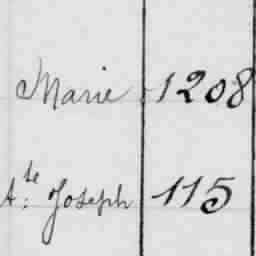 Marie 1208
Ate: Joseph 115